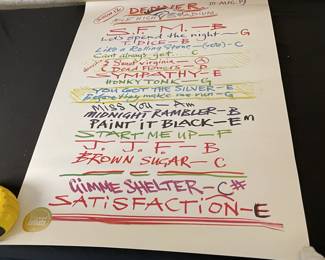 DENVER
MILE HIGH STADIUM
S.F.M. - B
Let's spend the night - G
T. DICE - B
Like a Rolling Stone - (vote) - C
Can't always get.. C
Sweet Virginia - A
Dead Flowers - D
SYMPATHY - E
HONKY TONK - G
YOU GOT THE SILVER - E
Before they make me run - G
MISS YOU - Am
MIDNIGHT RAMBLER - B
PAINT IT BLACK - Em
START ME UP - F
J. J. F - B
BROWN SUGAR - C
GIMME SHELTER - C#
SATISFACTION - E